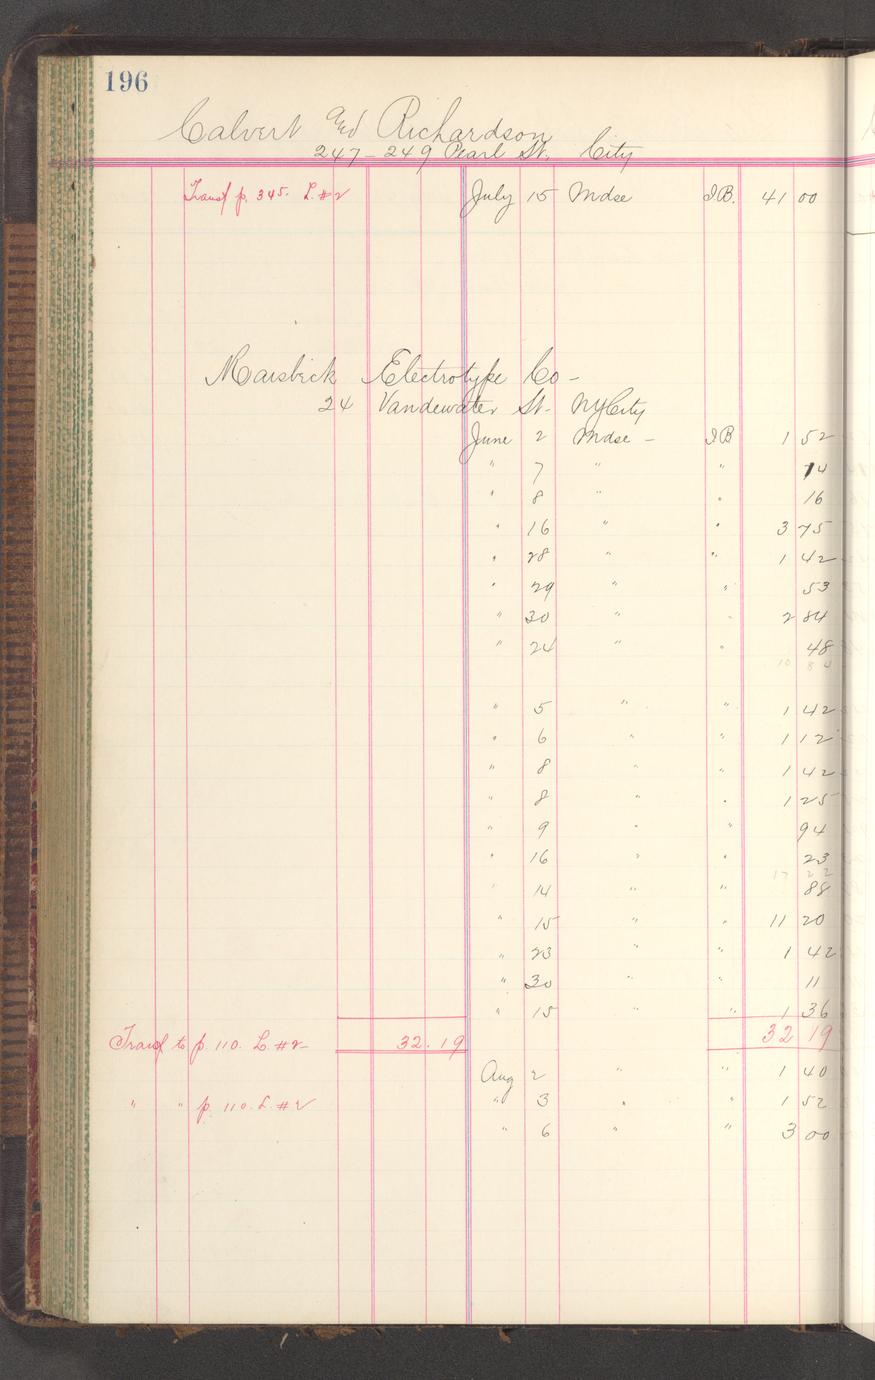 196
Calvert and Richardson
247-249 Pearl St. City
Transf p. 345. L. #2 July 15 Mdse I.B. 41 00
Electrotype Co -
24 Vandewater St - NYCity
June 2 Mdse - I B 1 52
" 7 " " 14
" 8 " " 16
" 16 " " 3 75
" 28 " " 1 42
" 29 " " 53
" 30 " " 2 84
" 24 " " 48
10 84
" 5 " " 1 42
" 6 " " 1 12
" 8 " " 1 42
" 8 " " 1 25
" 9 " " 94
" 16 " " 23
17 22
" 14 " " 88
" 15 " " 11 20
" 23 " " 1 42
" 30 " " 11
" 15 " " 1 36
Transf to p. 110. L. #2 32.19 32 19
Aug 2 " " 1 40
" " p. 110. L. #2 " 3 " " 1 52
" 6 " " 3 00